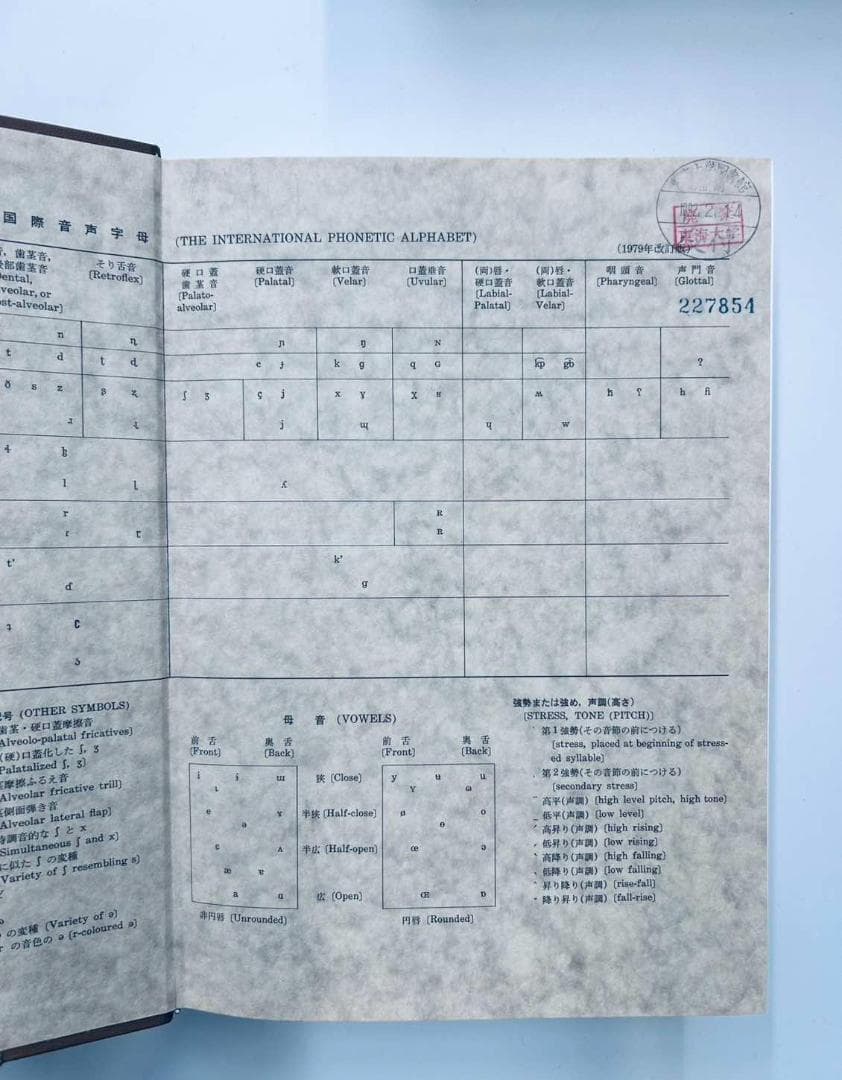 国際音声字母
(THE INTERNATIONAL PHONETIC ALPHABET)
(1979年改訂版)
227854
歯茎音,
後部歯茎音
Dental,
veolar, or
ost-alveolar]
そり舌音
[Retroflex]
硬口蓋
歯茎音
[Palato-
alveolar]
硬口蓋音
[Palatal]
軟口蓋音
[Velar]
口蓋垂音
[Uvular]
(両)唇・
硬口蓋音
[Labial-
Palatal]
(両)唇・
軟口蓋音
[Labial-
Velar]
咽頭音
[Pharyngeal]
声門音
[Glottal]
n ɳ ɲ ŋ ɴ
t d ʈ ɖ c ɟ k ɡ q ɢ k͡p ɡ͡b ʔ
ð s z ʂ ʐ ʃ ʒ ç j x ɣ χ ʁ ʍ ħ ʕ h ɦ
ɹ ɻ j ɰ ɥ w
ɬ ɮ
l ɭ ʎ
r ʀ
ɾ ɽ ʀ
t' k'
ɗ ɠ
ʇ ʗ
ʖ
号 (OTHER SYMBOLS)
歯茎・硬口蓋摩擦音
Alveolo-palatal fricatives]
(硬)口蓋化した ʃ, ʒ
Palatalized ʃ, ʒ]
摩擦ふるえ音
Alveolar fricative trill]
側面弾き音
Alveolar lateral flap]
時調音的な ʃ と x
Simultaneous ʃ and x]
に似た ʃ の変種
Variety of ʃ resembling s]
の変種 [Variety of ə]
r の音色の ə [r-coloured ə]
母音 (VOWELS)
前舌
[Front]
奥舌
[Back]
前舌
[Front]
奥舌
[Back]
i ɨ ɯ 狭 [Close] y ʉ u
ɩ ʏ ɷ
e ɤ 半狭 [Half-close] ø o
ə ɵ
ɛ ʌ 半広 [Half-open] œ ɔ
æ ɐ
a ɑ 広 [Open] ɶ ɒ
非円唇 [Unrounded] 円唇 [Rounded]
強勢または強め, 声調(高さ)
[STRESS, TONE (PITCH)]
ˈ 第1強勢(その音節の前につける)
[stress, placed at beginning of stress-
ed syllable]
ˌ 第2強勢(その音節の前につける)
[secondary stress]
ˉ 高平(声調) [high level pitch, high tone]
ˍ 低平(声調) [low level]
ˊ 高昇り(声調) [high rising]
ˏ 低昇り(声調) [low rising]
ˋ 高降り(声調) [high falling]
ˎ 低降り(声調) [low falling]
ˆ 昇り降り(声調) [rise-fall]
ˇ 降り昇り(声調) [fall-rise]